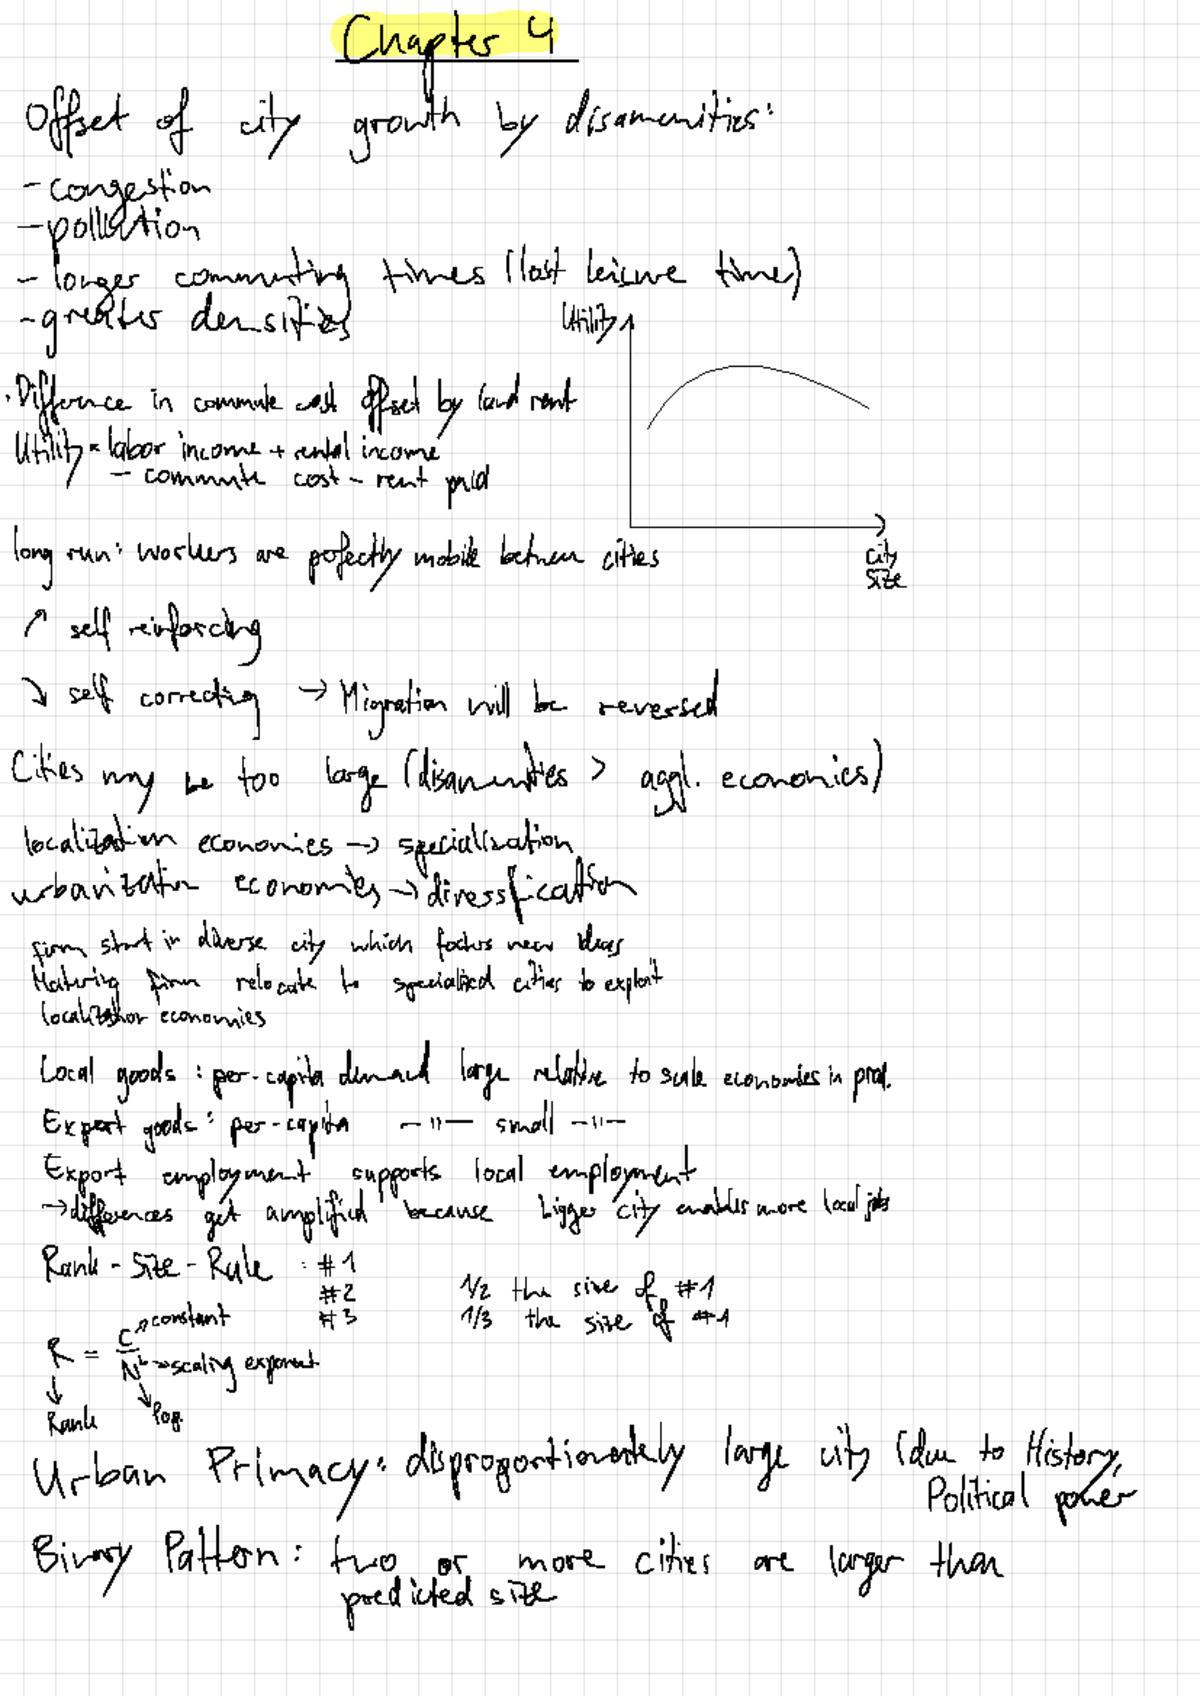 Chapter 4
Offset of city growth by disamenities:
- congestion
- pollution
- longer commuting times (lost leisure time)
- greater densities
Utility
· Difference in commute cost offset by land rent
Utility = labor income + rental income
- commute cost - rent paid
city
size
long run: workers are pefectly mobile between cities
↗ self reinforcing
↘ self correcting → Migration will be reversed
Cities may be too large (disamenities > aggl. economics)
localization economies → specialization
urbanization economies → diversification
firm start in diverse city which fosters new ideas
Maturing firm relocate to specialized cities to exploit
localization economies
Local goods : per-capita demand large relative to scale economies in prod.
Export goods : per-capita -"- small -"-
Export employment supports local employment
→ differences get amplified because bigger city enables more local jobs
Rank-Size-Rule : #1
#2 1/2 the size of #1
#3 1/3 the size of #1
R = C/N^b
constant
scaling exponent
Rank
Pop.
Urban Primacy: disproportionately large city (due to History,
Political power
Binary Pattern: two or more cities are larger than
predicted size